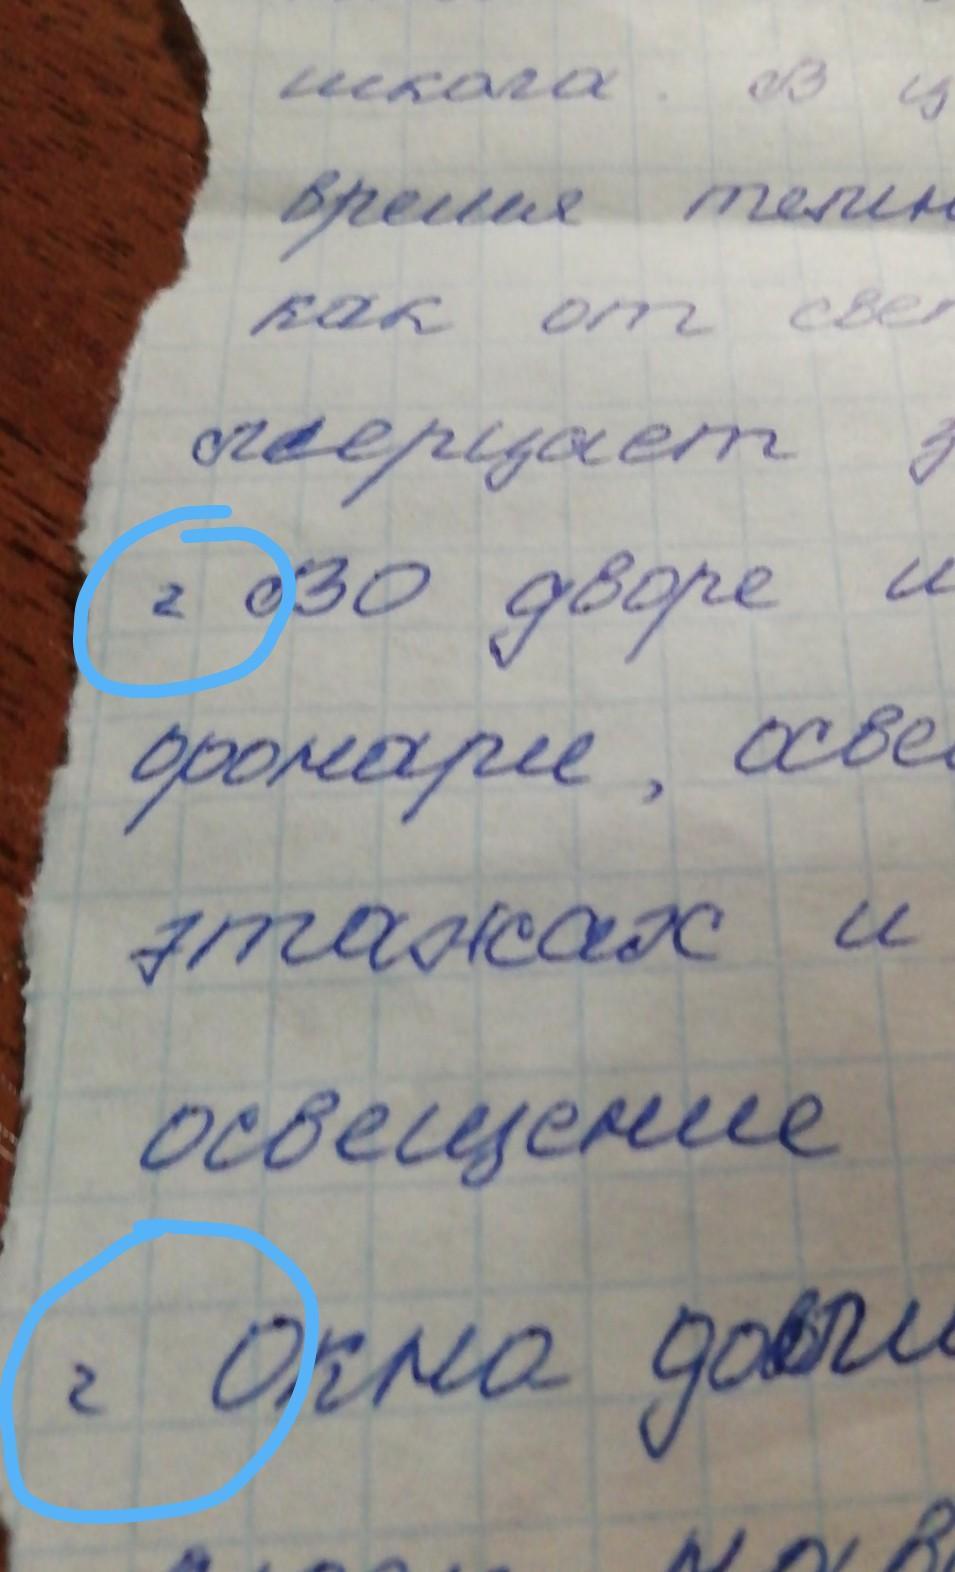 школа. В ц
время темн
как от свет
мерцает з
г Во дворе и
фонари, осве
этажах и
освещение
г Окна